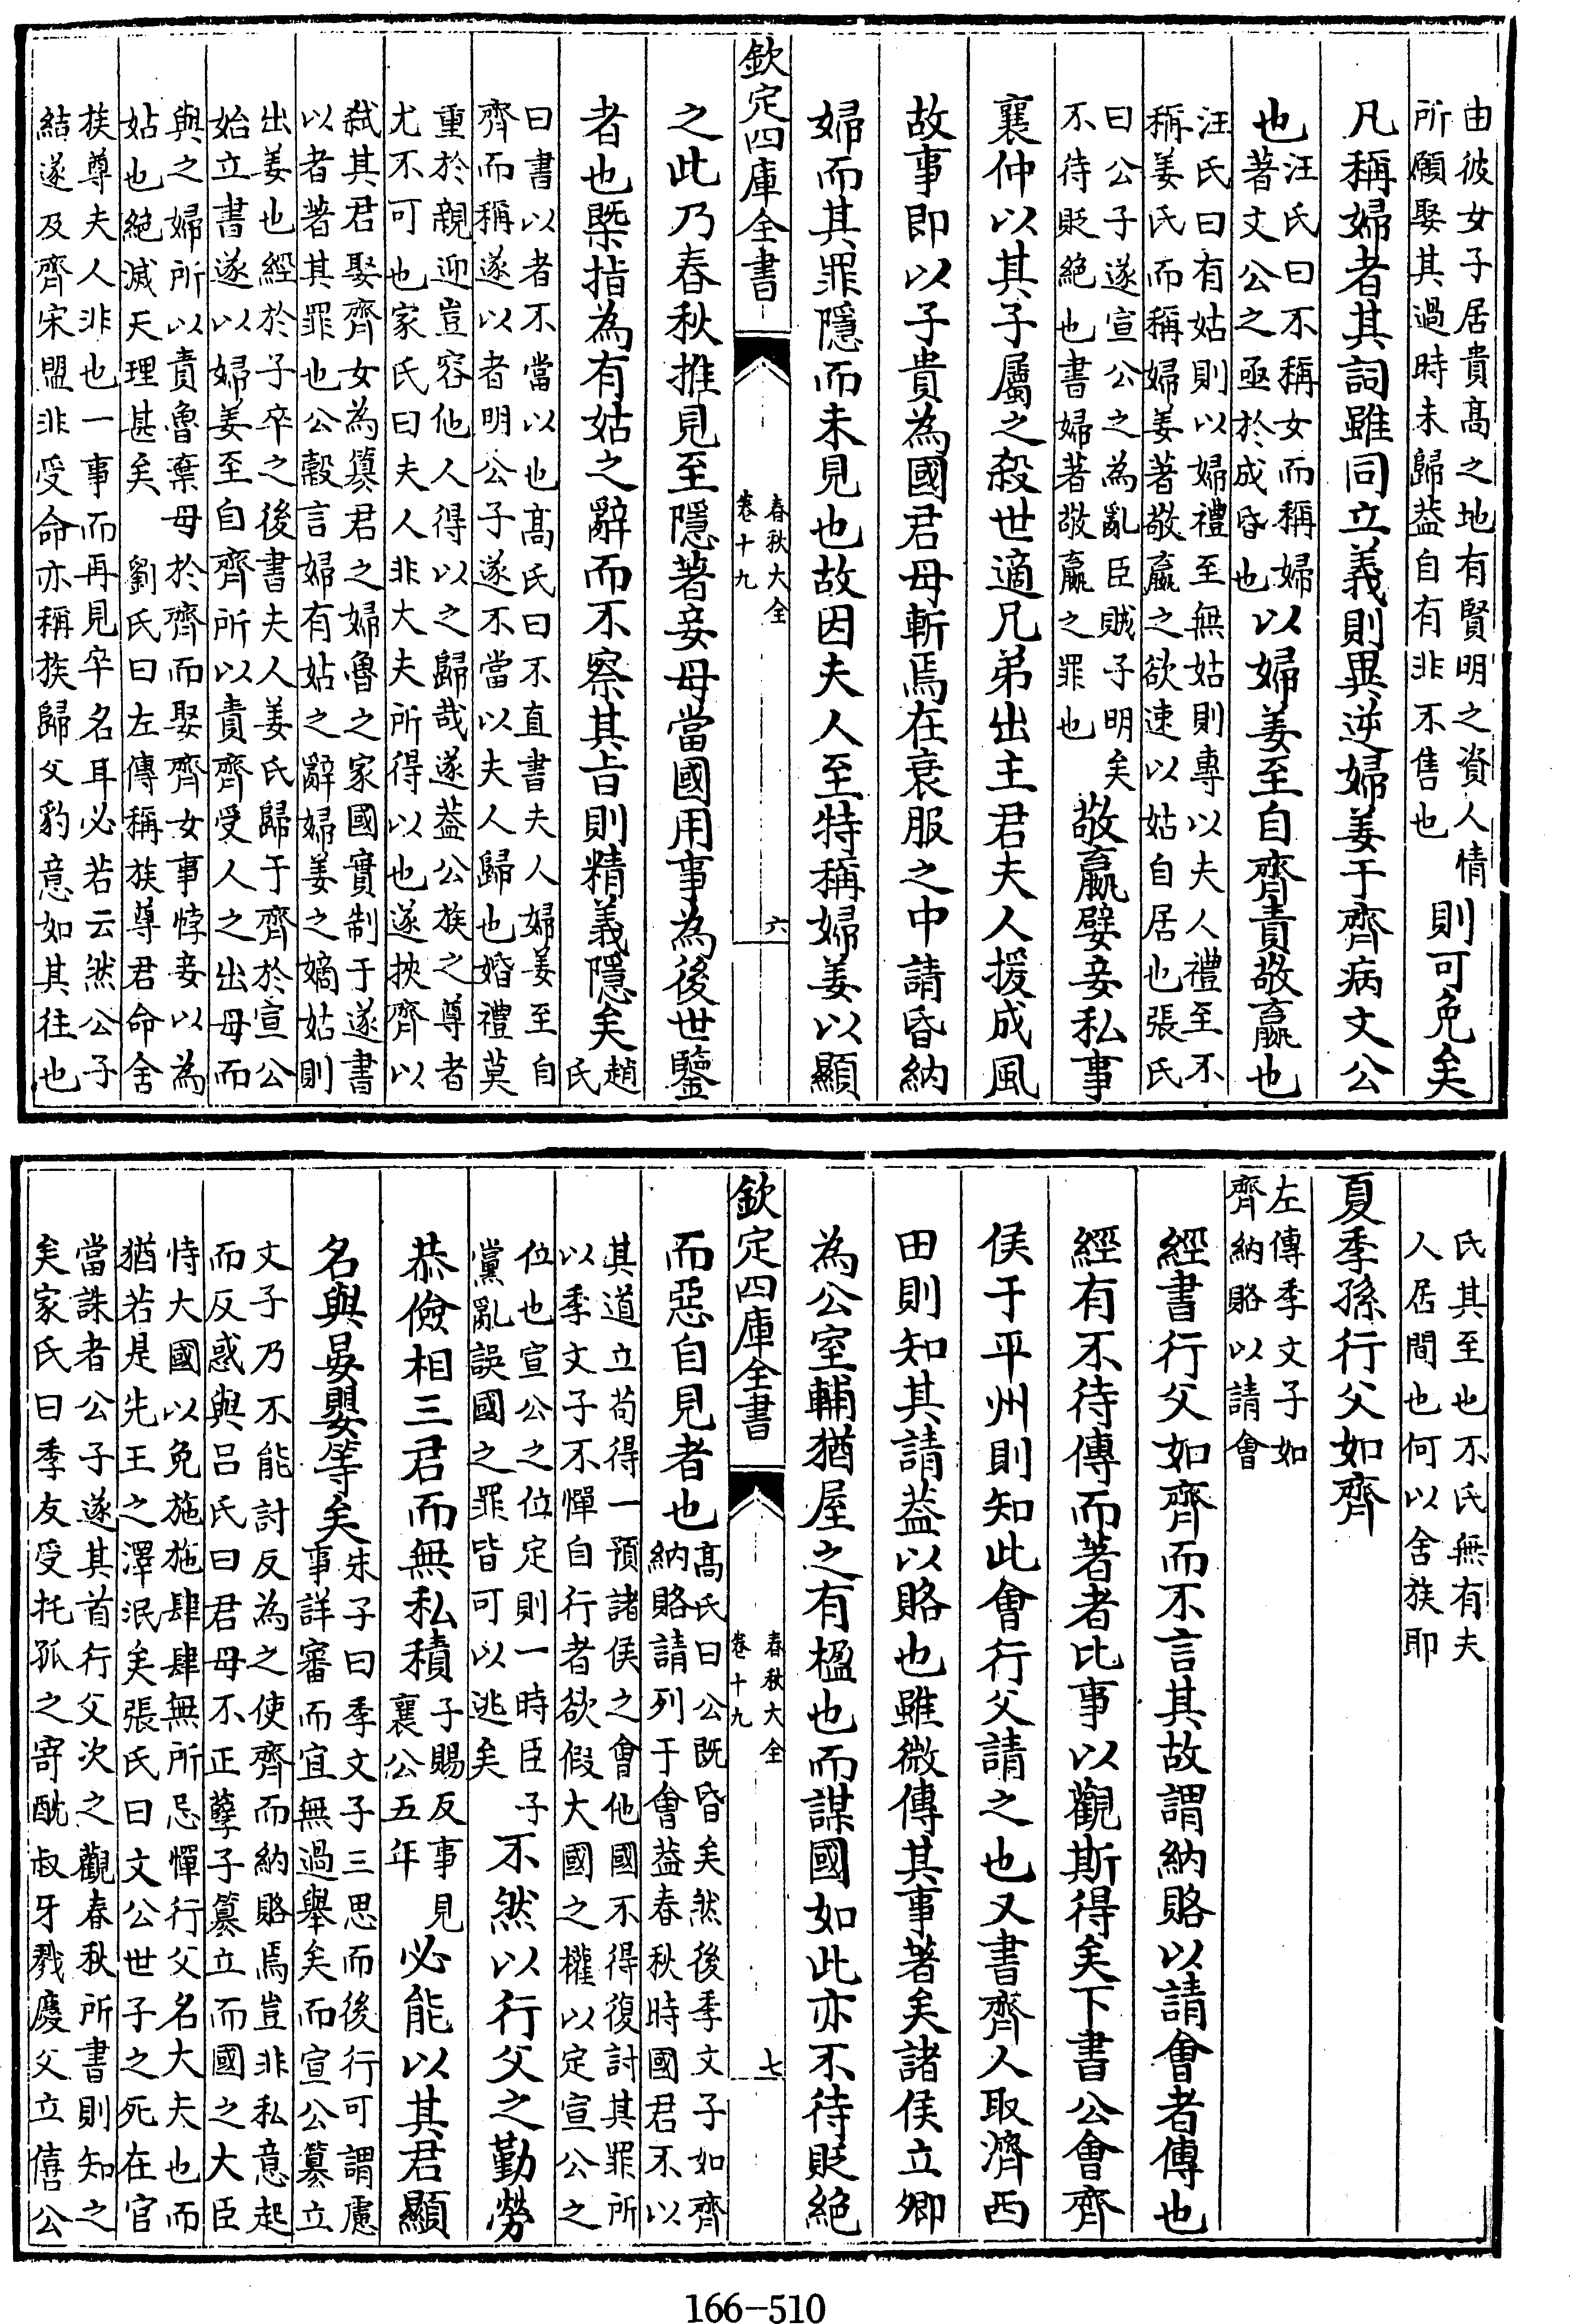 由彼女子居貴髙之地有賢明之資人情
所願娶其過時未歸葢自有非不售也
則可免矣
凡稱婦者其詞雖同立義則異逆婦姜于齊病文公
也
汪氏曰不稱女而稱婦
著文公之亟於成昏也
以婦姜至自齊責敬嬴也
汪氏曰有姑則以婦禮至無姑則專以夫人禮至不
稱姜氏而稱婦姜著敬嬴之欲速以姑自居也張氏
曰公子遂宣公之為亂臣賊子明矣
不待貶絕也書婦著敬嬴之罪也
敬嬴嬖妾私事
襄仲以其子屬之殺世適兄弟出主君夫人援成風
故事即以子貴為國君母斬焉在衰服之中請昏納
婦而其罪隱而未見也故因夫人至特稱婦姜以顯
欽定四庫全書
春秋大全
卷十九
六
之此乃春秋推見至隱著妾母當國用事為後世鑒
者也槩指為有姑之辭而不察其㫖則精義隱矣
趙
氏
曰書以者不當以也髙氏曰不直書夫人婦姜至自
齊而稱遂以者明公子遂不當以夫人歸也婚禮莫
重於親迎豈容他人得以之歸哉遂葢公族之尊者
尤不可也家氏曰夫人非大夫所得以也遂挾齊以
弑其君娶齊女為簒君之婦魯之家國實制于遂書
以者著其罪也公穀言婦有姑之辭婦姜之嫡姑則
出姜也經於子卒之後書夫人姜氏歸于齊於宣公
始立書遂以婦姜至自齊所以責齊受人之出母而
與之婦所以責魯棄母於齊而娶齊女事悖妾以為
姑也絕滅天理甚矣　劉氏曰左傳稱族尊君命舍
族尊夫人非也一事而再見卒名耳必若云然公子
結遂及齊宋盟非受命亦稱族歸父豹意如其往也
氏其至也不氏無有夫
人居間也何以舍族耶
夏季孫行父如齊
左傳季文子如
齊納賂以請會
經書行父如齊而不言其故謂納賂以請會者傳也
經有不待傳而著者比事以觀斯得矣下書公會齊
侯于平州則知此會行父請之也又書齊人取濟西
田則知其請葢以賂也雖微傳其事著矣諸侯立卿
為公室輔猶屋之有楹也而謀國如此亦不待貶絕
欽定四庫全書
春秋大全
卷十九
七
而惡自見者也
髙氏曰公既昏矣然後季文子如齊
納賂請列于會葢春秋時國君不以
其道立苟得一預諸侯之會他國不得復討其罪所
以季文子不憚自行者欲假大國之權以定宣公之
位也宣公之位定則一時臣子
黨亂誤國之罪皆可以逃矣
不然以行父之勤勞
恭儉相三君而無私積
子賜反事見
襄公五年
必能以其君顯
名與晏嬰等矣
朱子曰季文子三思而後行可謂慮
事詳審而宜無過舉矣而宣公簒立
文子乃不能討反為之使齊而納賂焉豈非私意起
而反惑與吕氏曰君母不正孽子簒立而國之大臣
恃大國以免施施肆肆無所忌憚行父名大夫也而
猶若是先王之澤泯矣張氏曰文公世子之死在官
當誅者公子遂其首行父次之觀春秋所書則知之
矣家氏曰季友受托孤之寄酖叔牙戮慶父立僖公
166-510